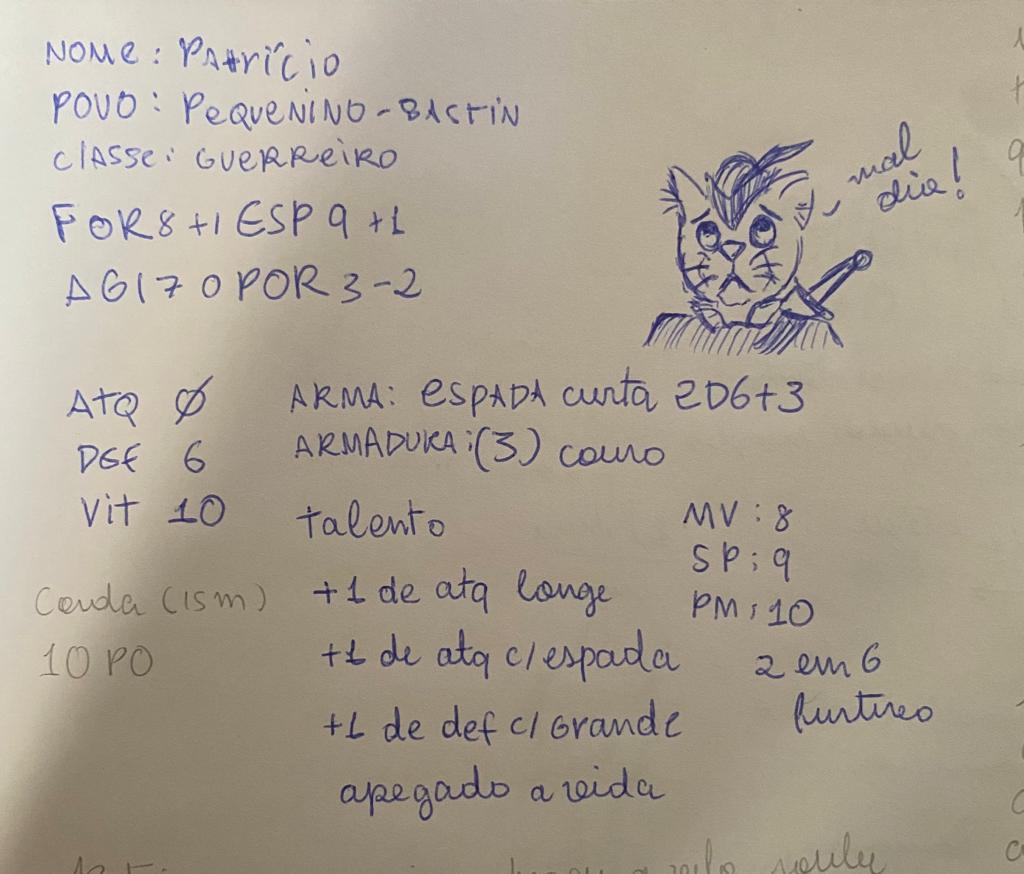 NOME: PAtrício
POVO: PEQUENINO-BASTIN
clASSE: GUERREIRO
FOR 8 +1 ESP 9 +1
AGI 7 0 POR 3 -2
mal
dia!
ATQ Ø
DEF 6
Vit 10
ARMA: ESPADA curta 2D6+3
ARMADURA: (3) couro
talento
+1 de atq longe
+1 de atq c/ espada
+1 de def c/ Grande
apegado a vida
MV: 8
SP: 9
PM: 10
2 em 6
furtivo
Corda (15m)
10 PO